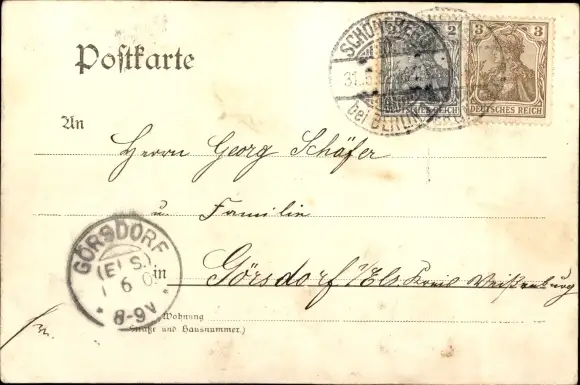 Postkarte
SCHÖNEBERG
31.5
bei BERLIN
2
3
DEUTSCHES REICH
An
Herrn Georg Schäfer
u. Familie
GÖRSDORF
(ELS.)
1 6 0
* 8-9V *
in Görsdorf i/Els Kreis Weißenburg
Wohnung
(Straße und Hausnummer.)